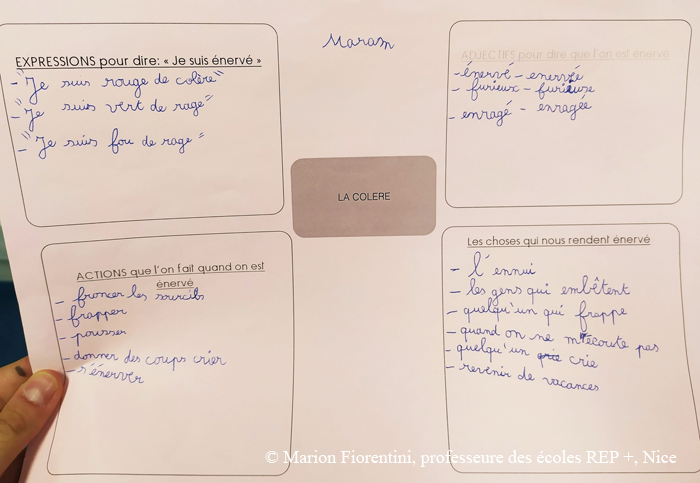 Maram
EXPRESSIONS pour dire: « Je suis énervé »
- "Je suis rouge de colère"
- "Je suis vert de rage"
- "Je suis fou de rage"
ADJECTIFS pour dire que l'on est énervé
- énervé - enervée
- furieux - furieuse
- enragé - enragée
LA COLERE
ACTIONS que l'on fait quand on est
énervé
- froncer les sourcils
- frapper
- pousser
- donner des coups crier
- s'énerver
Les choses qui nous rendent énervé
- l'ennui
- les gens qui embêtent
- quelqu'un qui frappe
- quand on ne m'écoute pas
- quelqu'un crie
- revenir de vacances
© Marion Fiorentini, professeure des écoles REP +, Nice